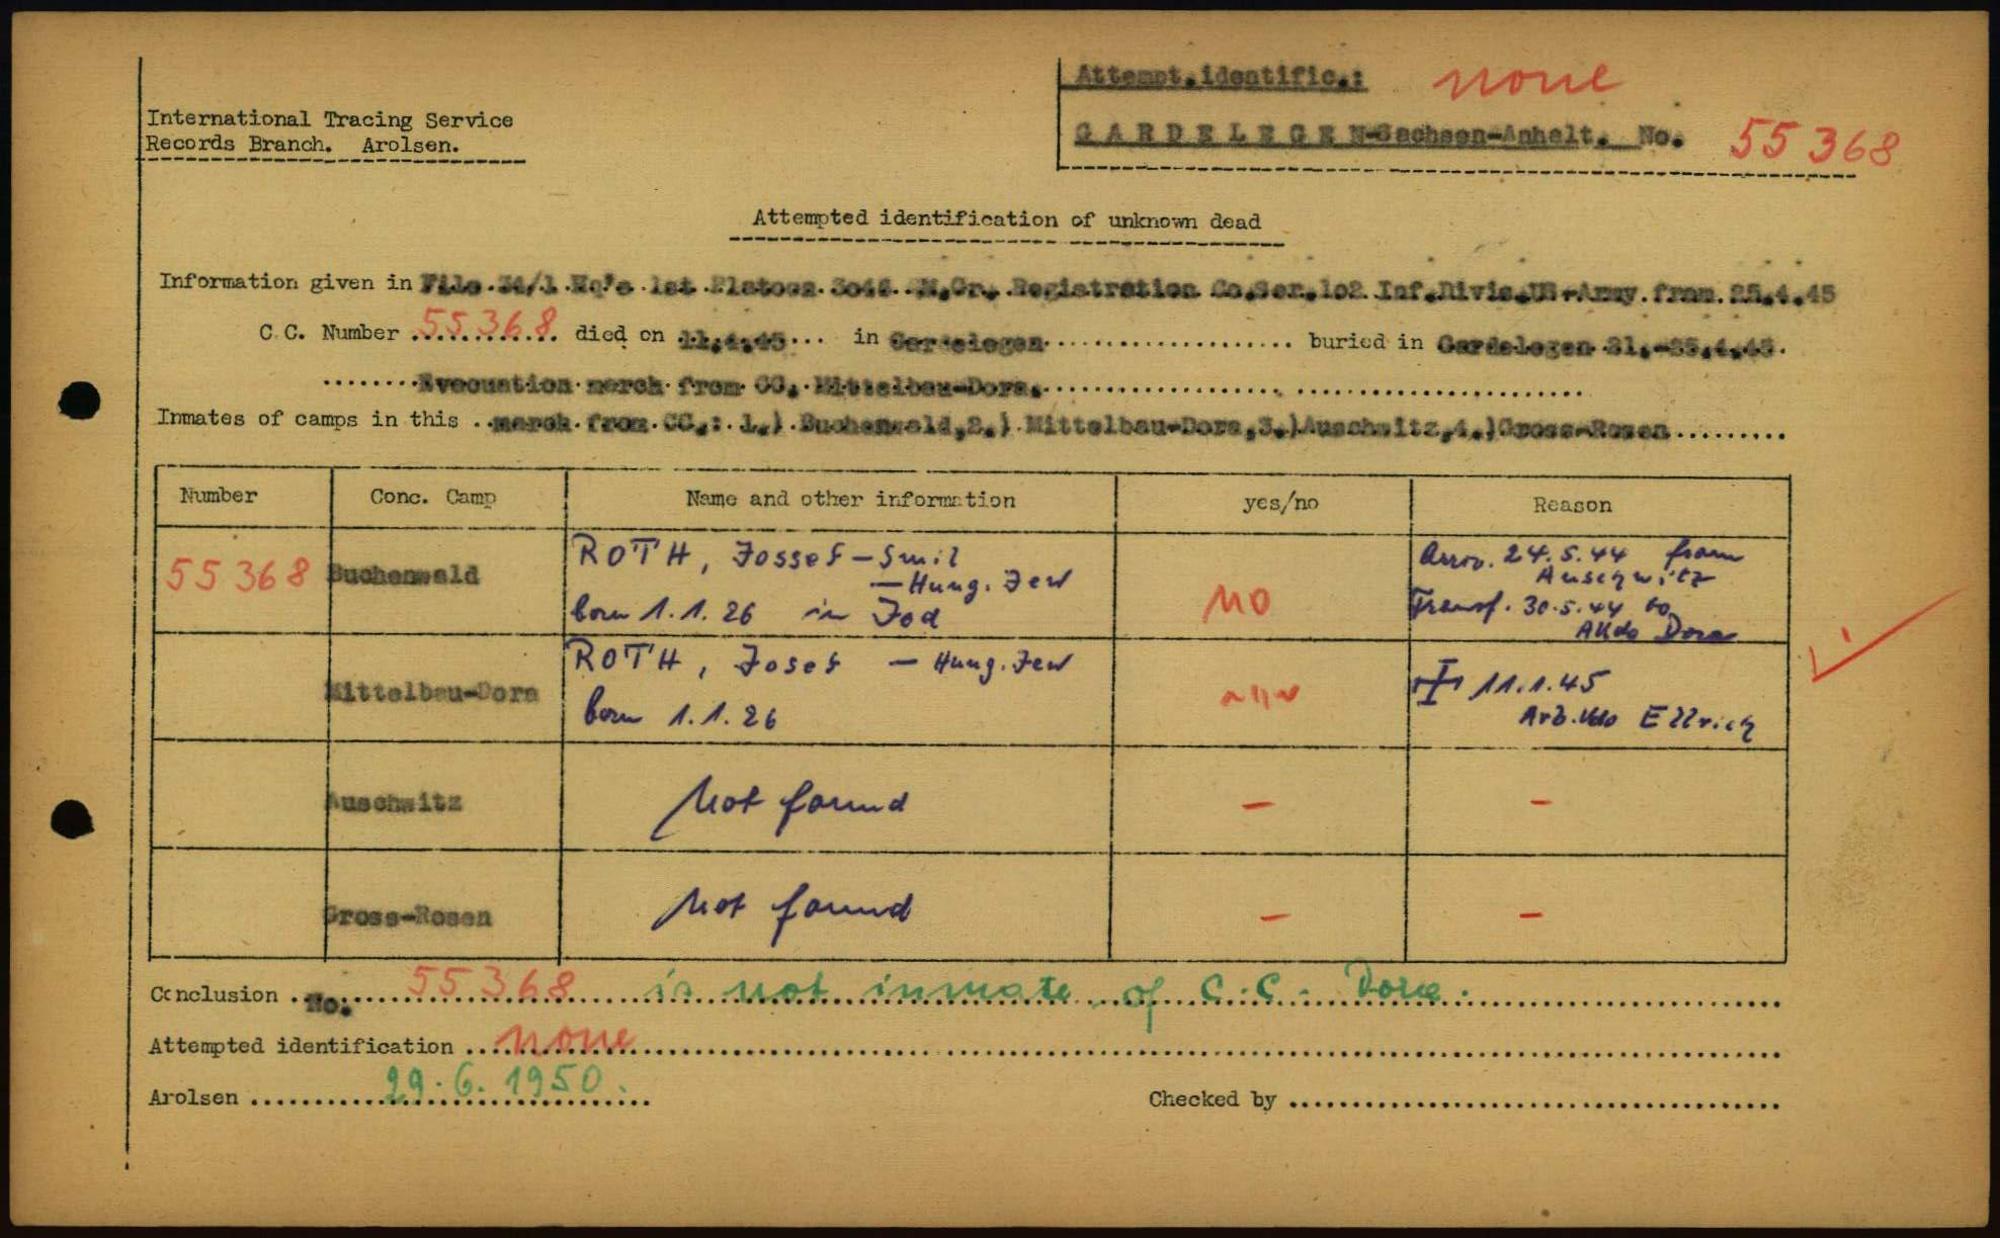 Attempt.identific.: none
International Tracing Service
Records Branch. Arolsen.
GARDELEGEN-Sachsen-Anhalt. No. 55368
Attempted identification of unknown dead
Information given in File.34/1 Hq's 1st Platoon 3046 M.Gr. Registration Co.Ser.102 Inf.Divis.US-Army.from.25.4.45
C.C. Number 55368 died on 11.4.45 in Gardelegen buried in Gardelegen 21.-25.4.45.
Evacuation march from CC. Mittelbau-Dora.
Inmates of camps in this march from CC.: 1.) Buchenwald,2.) Mittelbau-Dora,3.)Auschwitz,4.)Gross-Rosen
Number Conc. Camp Name and other information yes/no Reason
55368 Buchenwald ROTH, Jossef-Smil
- Hung. Jew
born 1.1.26 in Jod
no
Arriv. 24.5.44 from
Auschwitz
Transf. 30.5.44 to
AKdo Dora
Mittelbau-Dora ROTH, Josef - Hung. Jew
born 1.1.26
11.1.45
Arb.Kdo Ellrich
Auschwitz Not found - -
Gross-Rosen Not found - -
Conclusion No. 55368 is not inmate of C.C. Dora.
Attempted identification none
Arolsen 29.6.1950.
Checked by